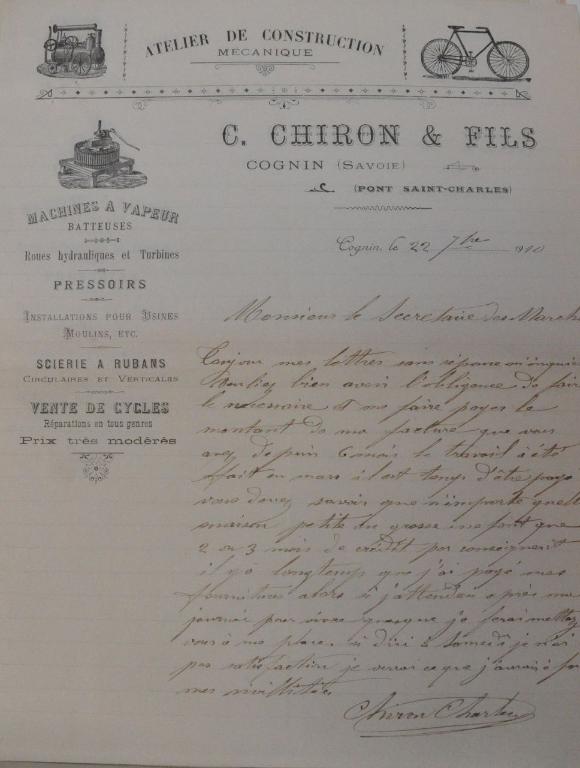 ATELIER DE CONSTRUCTION
MÉCANIQUE
C. CHIRON & FILS
COGNIN (SAVOIE)
(PONT SAINT-CHARLES)
MACHINES A VAPEUR
BATTEUSES
Roues hydrauliques et Turbines
PRESSOIRS
INSTALLATIONS POUR USINES
MOULINS, ETC.
SCIERIE A RUBANS
CIRCULAIRES ET VERTICALES
VENTE DE CYCLES
Réparations en tous genres
Prix très modérés
Cognin, le 22 7bre 1910
Monsieur le Secretaire des March
Toujour mes lettres sans réponse
Veuliez bien avoir l'obligence de fair
le nécessaire et me faire payer le
montant de ma facture que vous
avez depuis 6 mois le travail à été
fait en mars il est temps d'être payé
vous devez savoir que n'importe quell
maison petite ou grosse ne font que
2 ou 3 mois de crédit par conséquent
il y à longtemp que j'ai payé mes
fournitures alors si j'attendai après ma
journée pour vivre quesque je ferai mettez
vous à ma place. si d'ici à samedi je n'ai
pas satisfaction je verrai ce que j'aurai à fa
Chiron Charles